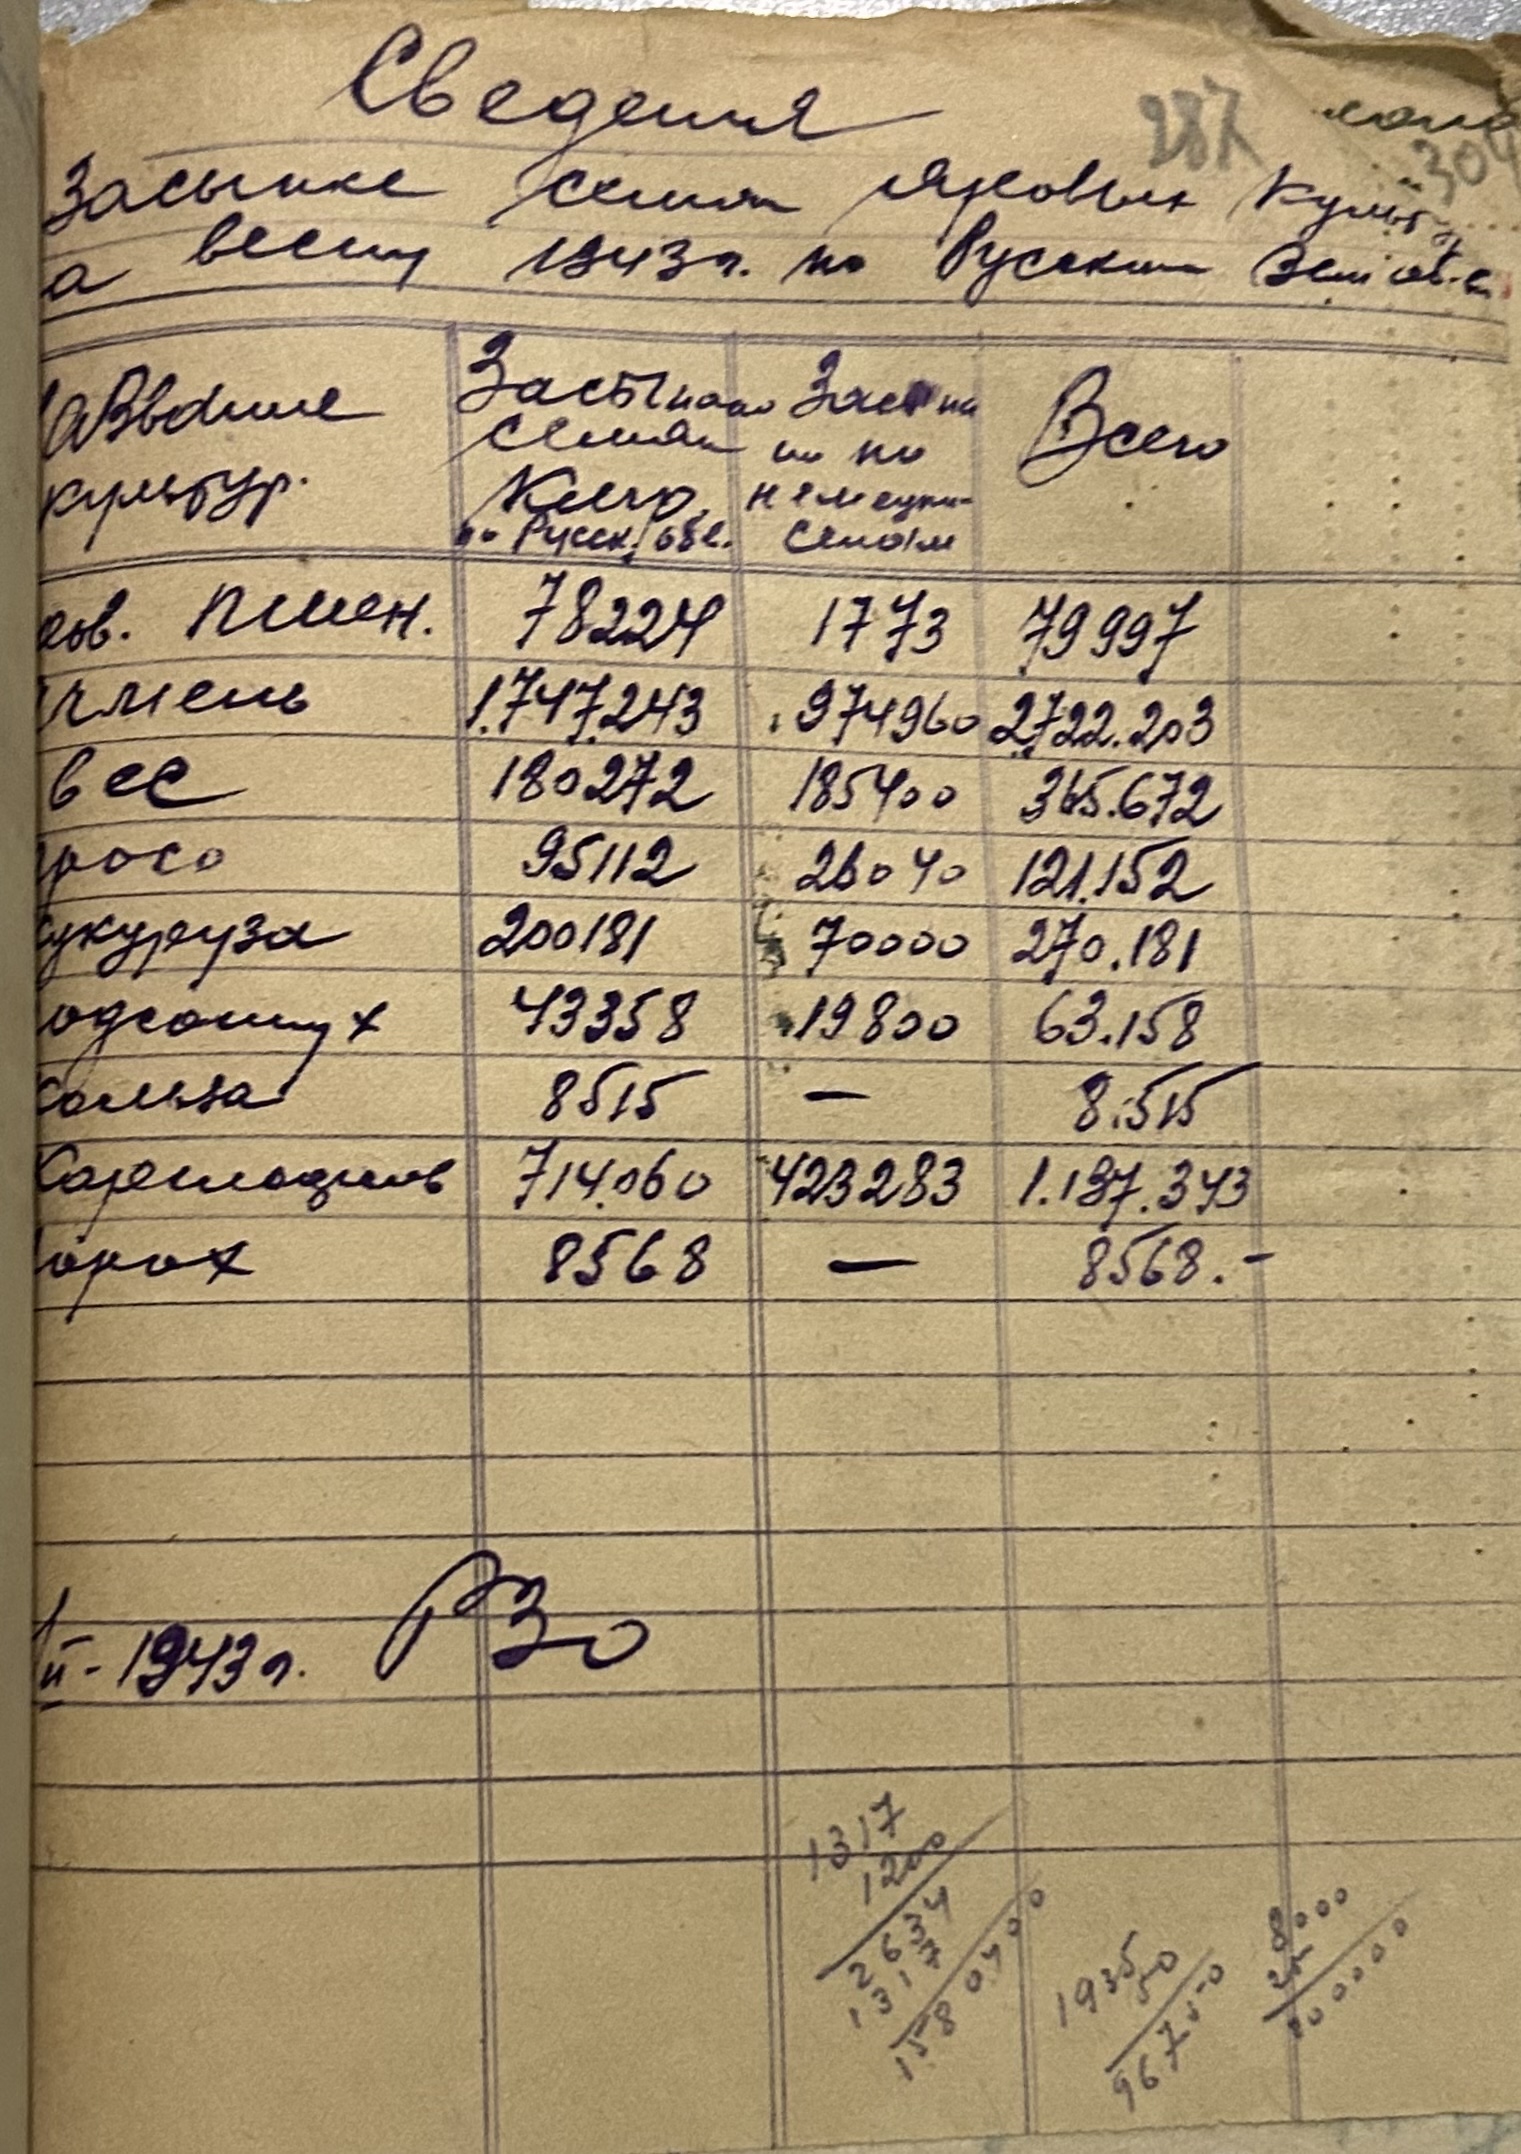 Сведения
287
304
Засыпке семян яровых культу
а весну 1943 г. по Русским
азвание культур.
Засыпано семян Кил по Русск. обл.
Засыпа но по немецки семям
Всего
ов. пшен. 78224 1773 79997
чмень 1.747.243 974960 2722.203
вес 180272 185400 365.672
росо 95112 26040 121.152
укуруза 200181 70000 270.181
одсолнух 43358 19800 63.158
8515 — 8.515
Картофель 714.060 423283 1.137.343
орох 8568 — 8568.-
II - 1943 г. РЗО
1317
1200
2634
1317
1580400
1935
50
96750
8000